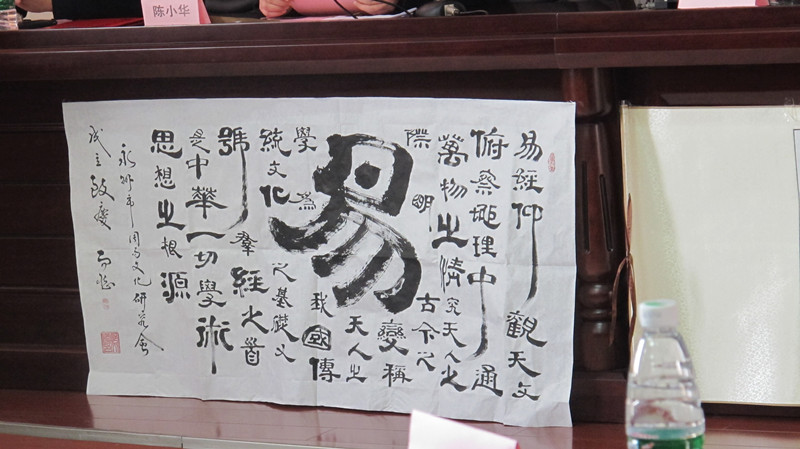 陈小华
易經仰觀天文
俯察地理中通
萬物之情究天人之
際明古今之
變稱
易
天人之
學為我國傳
統文化之基礎文
號群經之首
是中華一切學術
思想之根源
永州市周易文化研究會
成立致慶